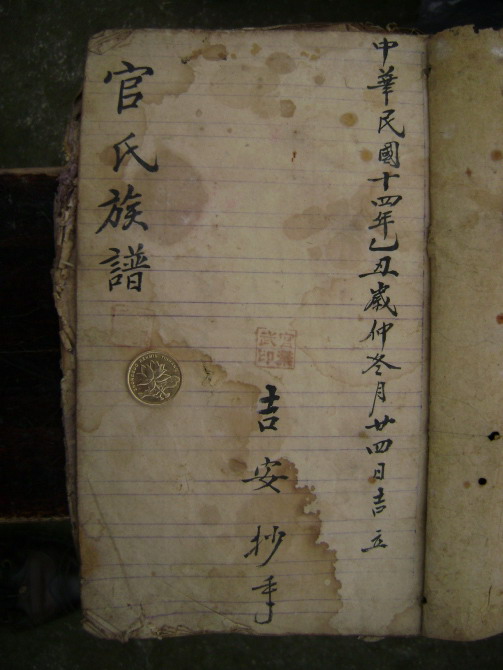 中華民國十四年乙丑歲仲冬月廿四日吉立
吉安抄手
官氏族譜